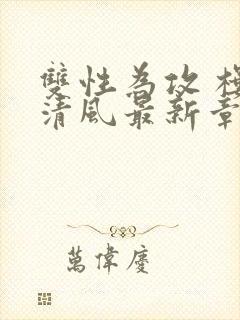 雙性為攻
清風最新章
萬偉慶